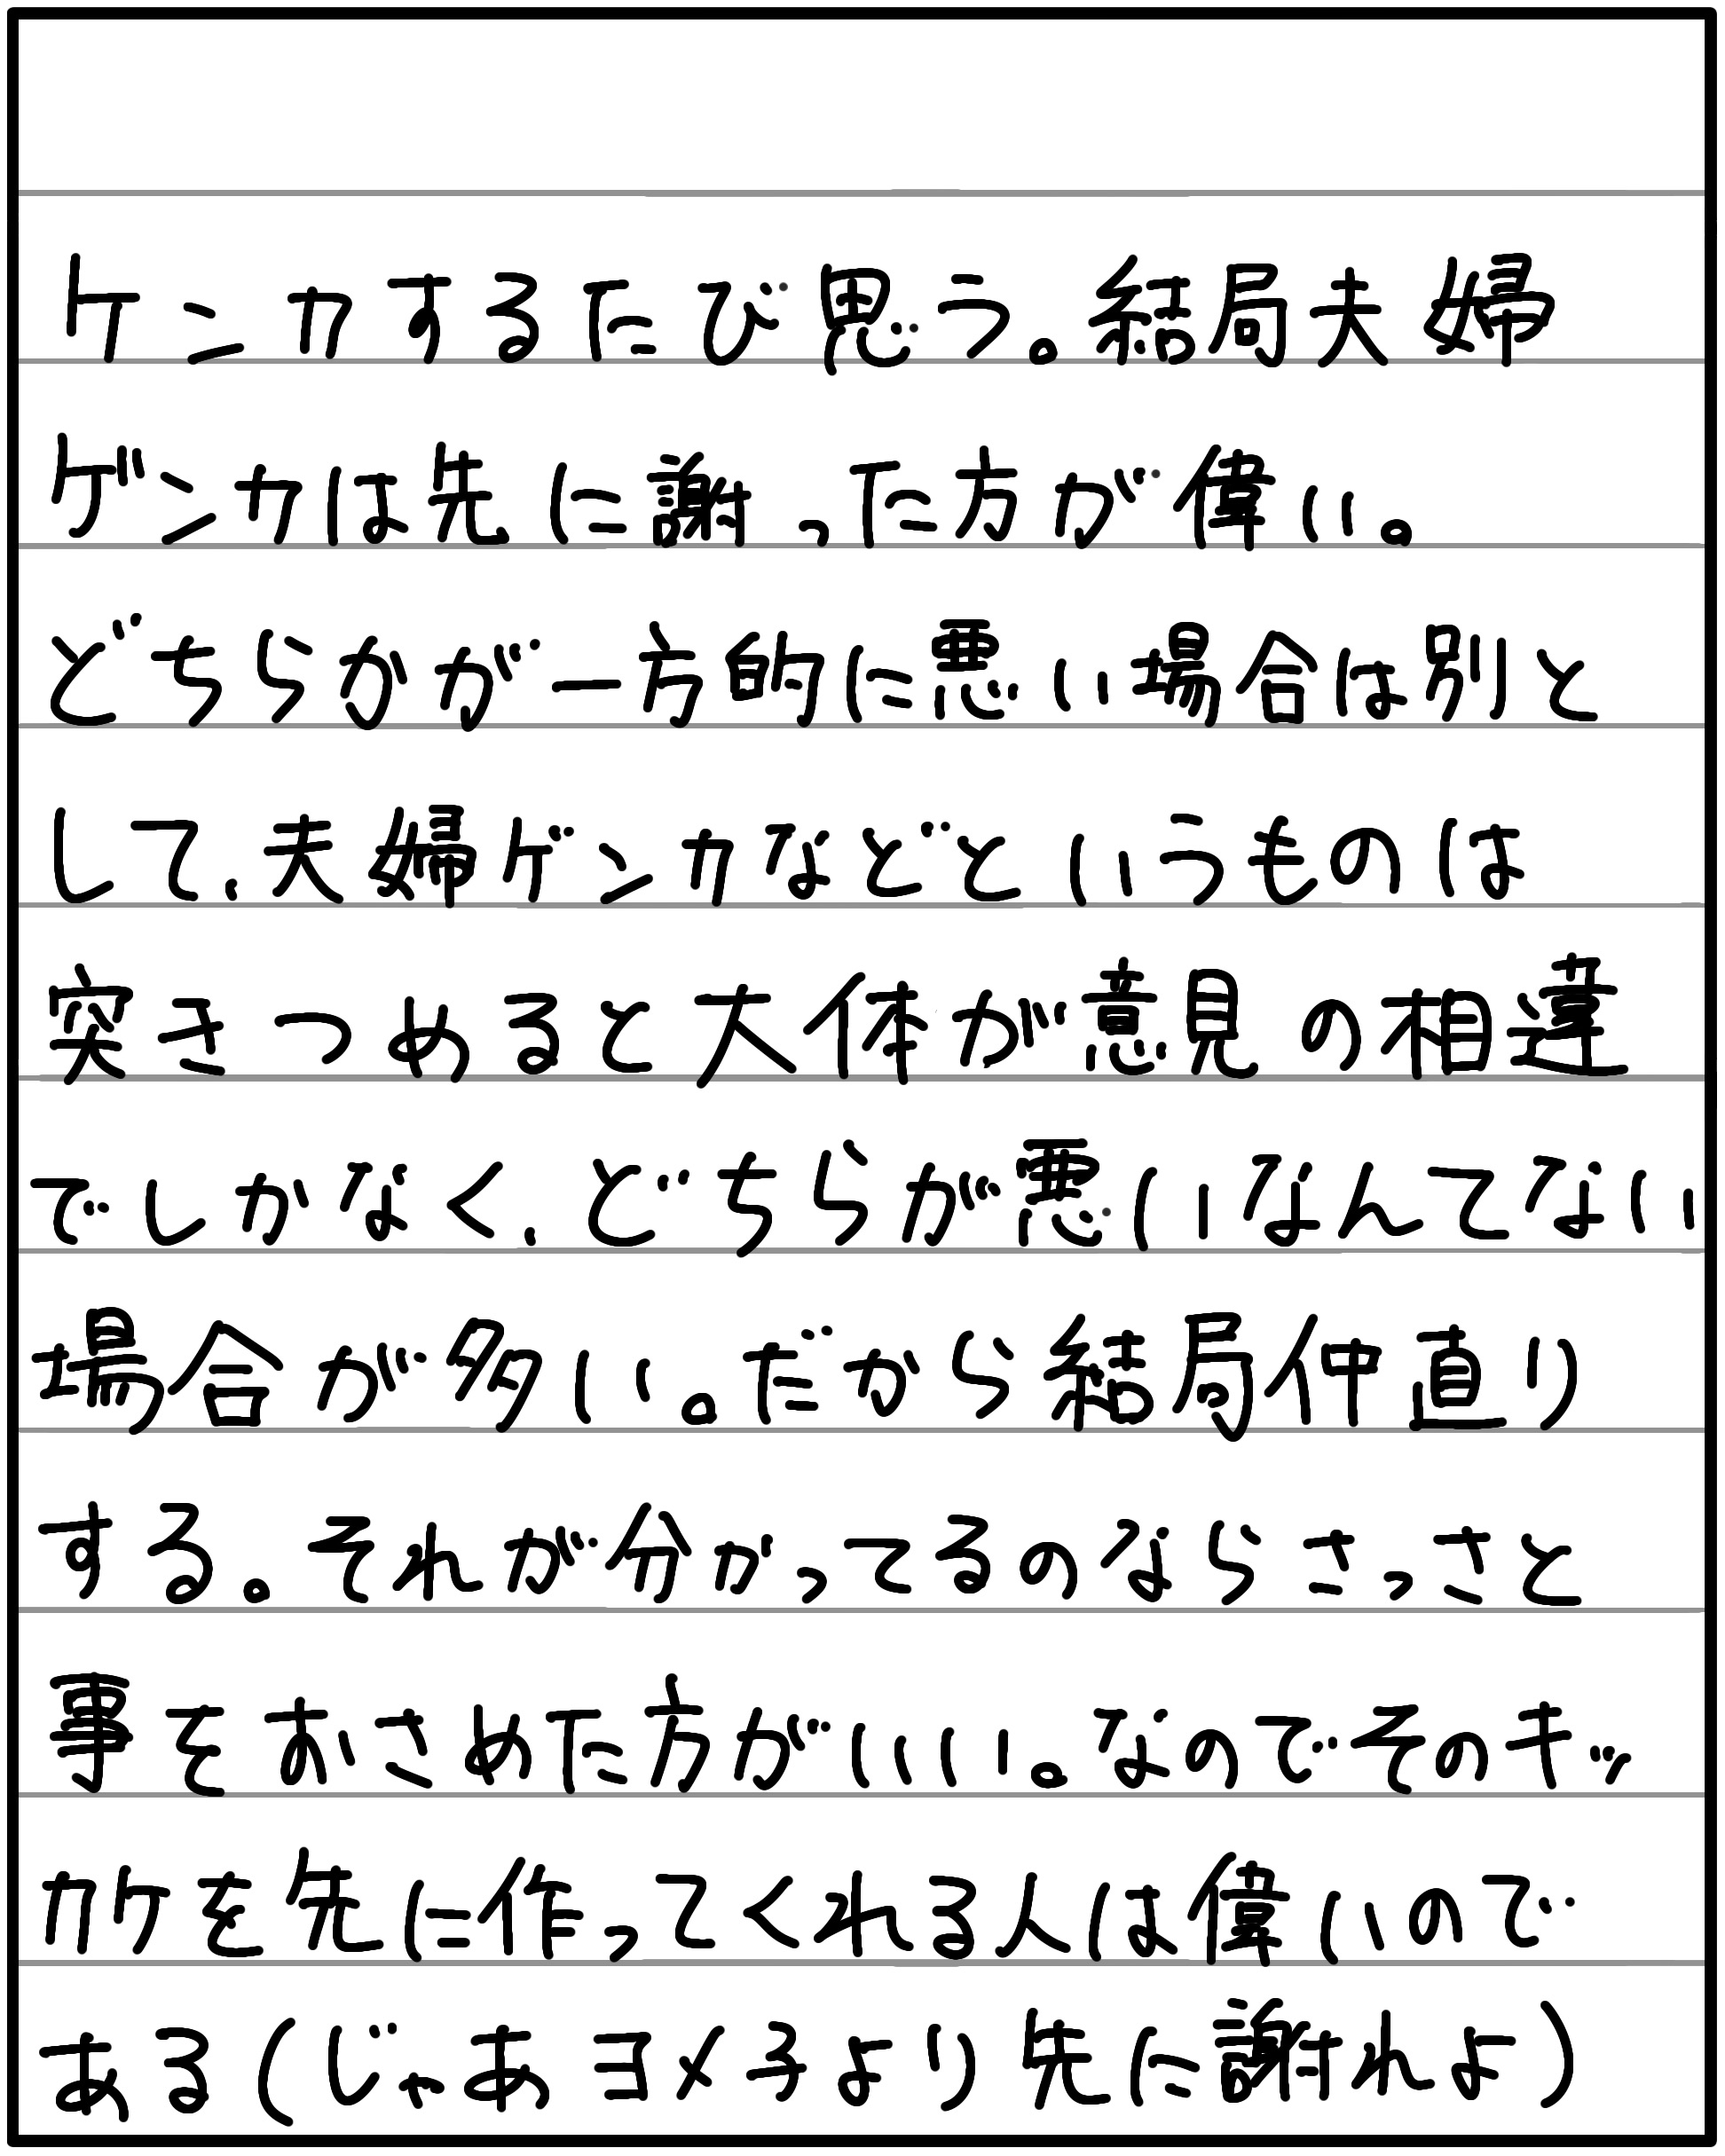 ケンカするたび思う。結局夫婦
ゲンカは先に謝った方が偉い。
どちらかが一方的に悪い場合は別と
して、夫婦ゲンカなどというものは
突きつめると大体が意見の相違
でしかなく、どちらが悪いなんてない
場合が多い。だから結局仲直り
する。それが分かってるのならさっさと
事をおさめた方がいい。なのでそのキッ
カケを先に作ってくれる人は偉いので
ある(じゃあヨメ子より先に謝れよ)